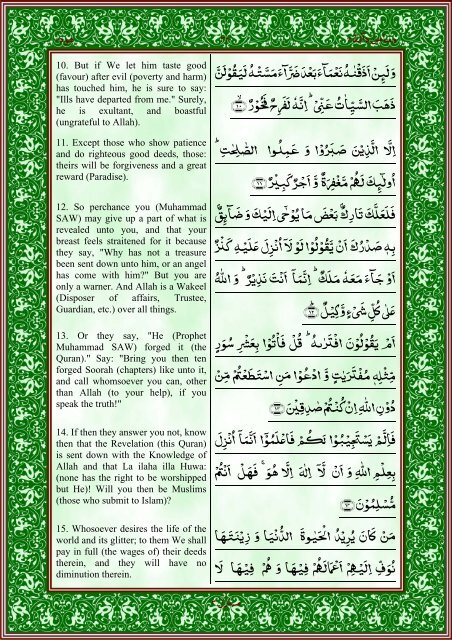 10. But if We let him taste good
(favour) after evil (poverty and harm)
has touched him, he is sure to say:
"Ills have departed from me." Surely,
he is exultant, and boastful
(ungrateful to Allah).
وَلَئِنْ اَذَقْنٰهُ نَعْمَآءَ بَعْدَ ضَرَّآءَ مَسَّتْهُ لَيَقُوْلَنَّ
ذَهَبَ السَّيِّاٰتُ عَنِّيْ ؕ اِنَّهٗ لَفَرِحٌ فَخُوْرٌ ۙ﴿۱۰﴾
11. Except those who show patience
and do righteous good deeds, those:
theirs will be forgiveness and a great
reward (Paradise).
اِلَّا الَّذِيْنَ صَبَرُوْا وَ عَمِلُوا الصّٰلِحٰتِ ؕ
اُولٰٓئِكَ لَهُمْ مَّغْفِرَةٌ وَّ اَجْرٌ كَبِيْرٌ ﴿۱۱﴾
12. So perchance you (Muhammad
SAW) may give up a part of what is
revealed unto you, and that your
breast feels straitened for it because
they say, "Why has not a treasure
been sent down unto him, or an angel
has come with him?" But you are
only a warner. And Allah is a Wakeel
(Disposer of affairs, Trustee,
Guardian, etc.) over all things.
فَلَعَلَّكَ تَارِكٌۢ بَعْضَ مَا يُوْحٰٓى اِلَيْكَ وَ ضَآئِقٌۢ
بِهٖ صَدْرُكَ اَنْ يَّقُوْلُوْا لَوْ لَاۤ اُنْزِلَ عَلَيْهِ كَنْزٌ
اَوْ جَآءَ مَعَهٗ مَلَكٌ ؕ اِنَّمَاۤ اَنْتَ نَذِيْرٌ ؕ وَ اللّٰهُ
عَلٰى كُلِّ شَيْءٍ وَّكِيْلٌ ؕ﴿۱۲﴾
13. Or they say, "He (Prophet
Muhammad SAW) forged it (the
Quran)." Say: "Bring you then ten
forged Soorah (chapters) like unto it,
and call whomsoever you can, other
than Allah (to your help), if you
speak the truth!"
اَمْ يَقُوْلُوْنَ افْتَرٰىهُ ؕ قُلْ فَاْتُوْا بِعَشْرِ سُوَرٍ
مِّثْلِهٖ مُفْتَرَيٰتٍ وَّ ادْعُوْا مَنِ اسْتَطَعْتُمْ مِّنْ
دُوْنِ اللّٰهِ اِنْ كُنْتُمْ صٰدِقِيْنَ ﴿۱۳﴾
14. If then they answer you not, know
then that the Revelation (this Quran)
is sent down with the Knowledge of
Allah and that La ilaha illa Huwa:
(none has the right to be worshipped
but He)! Will you then be Muslims
(those who submit to Islam)?
فَاِلَّمْ يَسْتَجِيْبُوْا لَكُمْ فَاعْلَمُوْۤا اَنَّمَاۤ اُنْزِلَ
بِعِلْمِ اللّٰهِ وَ اَنْ لَّاۤ اِلٰهَ اِلَّا هُوَ ۚ فَهَلْ اَنْتُمْ
مُّسْلِمُوْنَ ﴿۱۴﴾
15. Whosoever desires the life of the
world and its glitter; to them We shall
pay in full (the wages of) their deeds
therein, and they will have no
diminution therein.
مَنْ كَانَ يُرِيْدُ الْحَيٰوةَ الدُّنْيَا وَ زِيْنَتَهَا
نُوَفِّ اِلَيْهِمْ اَعْمَالَهُمْ فِيْهَا وَ هُمْ فِيْهَا لَا